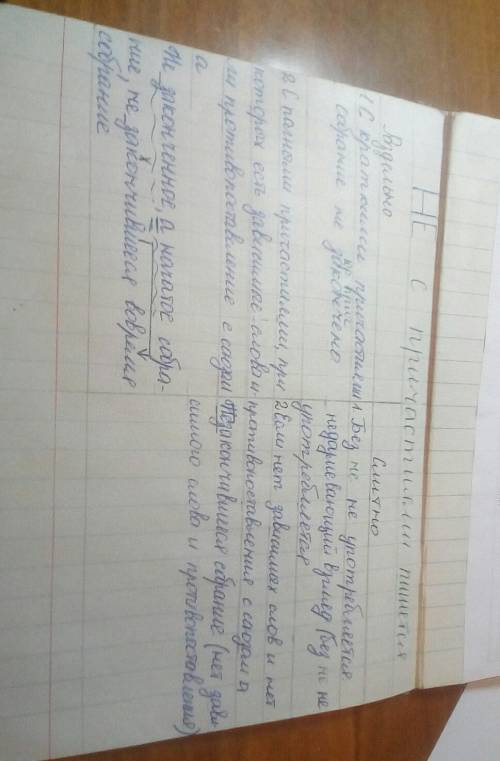 НЕ с причастиями пишется
Раздельно
1 С краткими причастиями
кр. прич.
собрание не закончено
2 С полными причастиями, при
которых есть зависимое слово и-
ли противопоставление с союзом
а
Не законченное, а начатое собра-
ние, не закончившееся вовремя
собрание
Слитно
1. Без не не употребляется
негодующий взгляд (без не не
употребляется
2 Если нет зависимых слов и нет
противопоставления с союзом а
Незакончившееся собрание (нет зави-
симого слова и противопоставления)